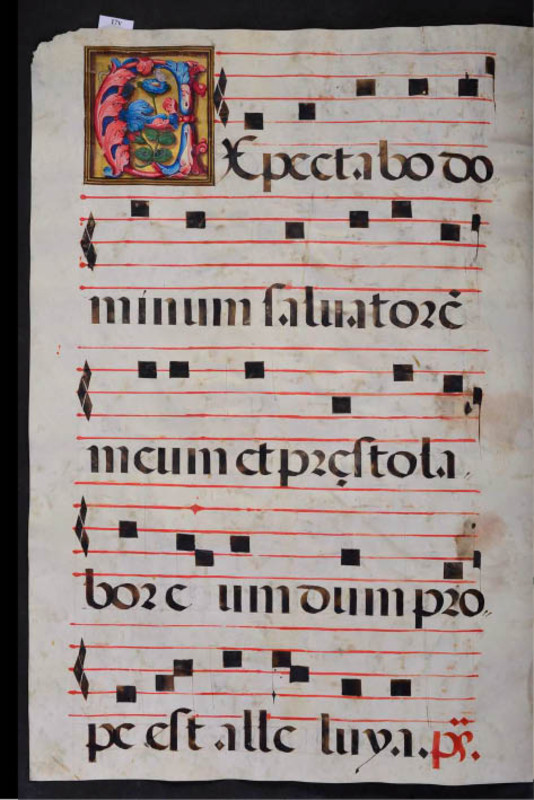 EXpectabo do
minum saluatorē
meum et pręstola
bor e um dum pro
pe est alle luya. ps.